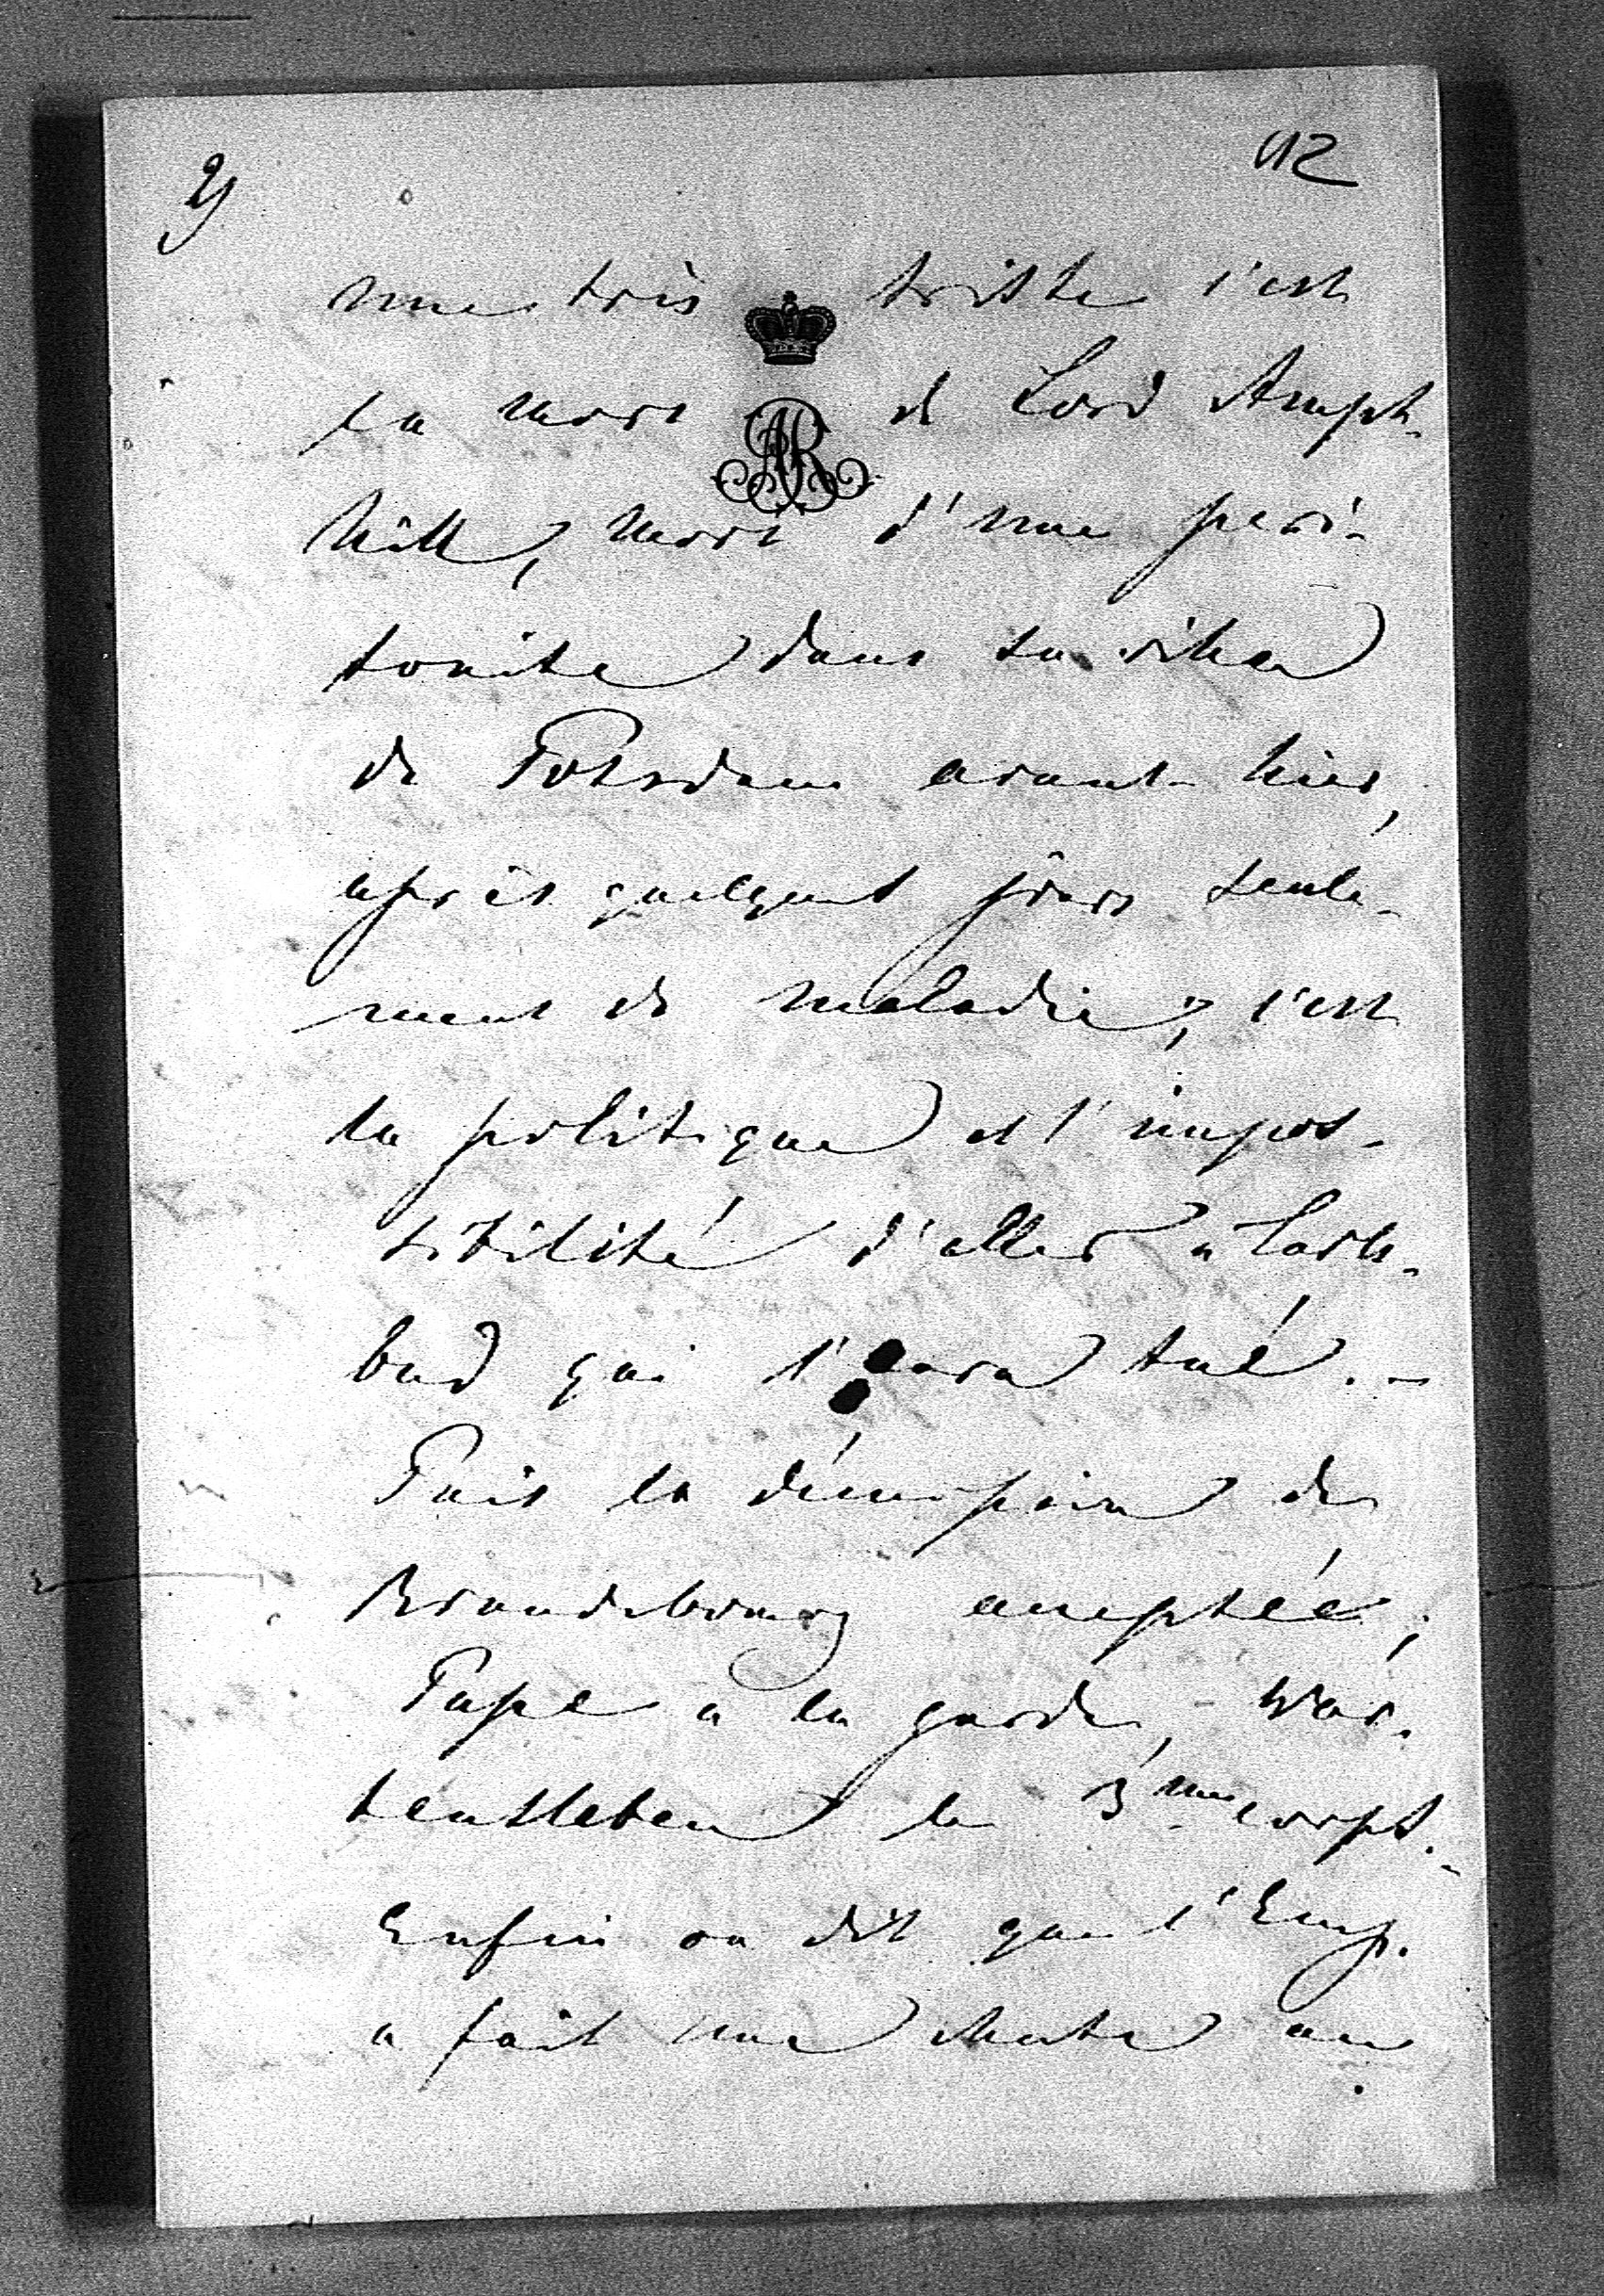 2)
112
une très triste c'est
la mort de Lord Ampt-
hill, mort d'une peri-
tonite dans sa villa
de Potsdam avant-hier,
après quelques jours seule-
ment de maladie; c'est
la politique et l'impos-
sibilité d'aller à Carls-
bad qui l'aura tué. -
Puis la démission de
Brandebourg acceptée;
Pape à la garde, War-
tensleben le 3me corps. -
Enfin on dit que l'Emp.
a fait une chute au